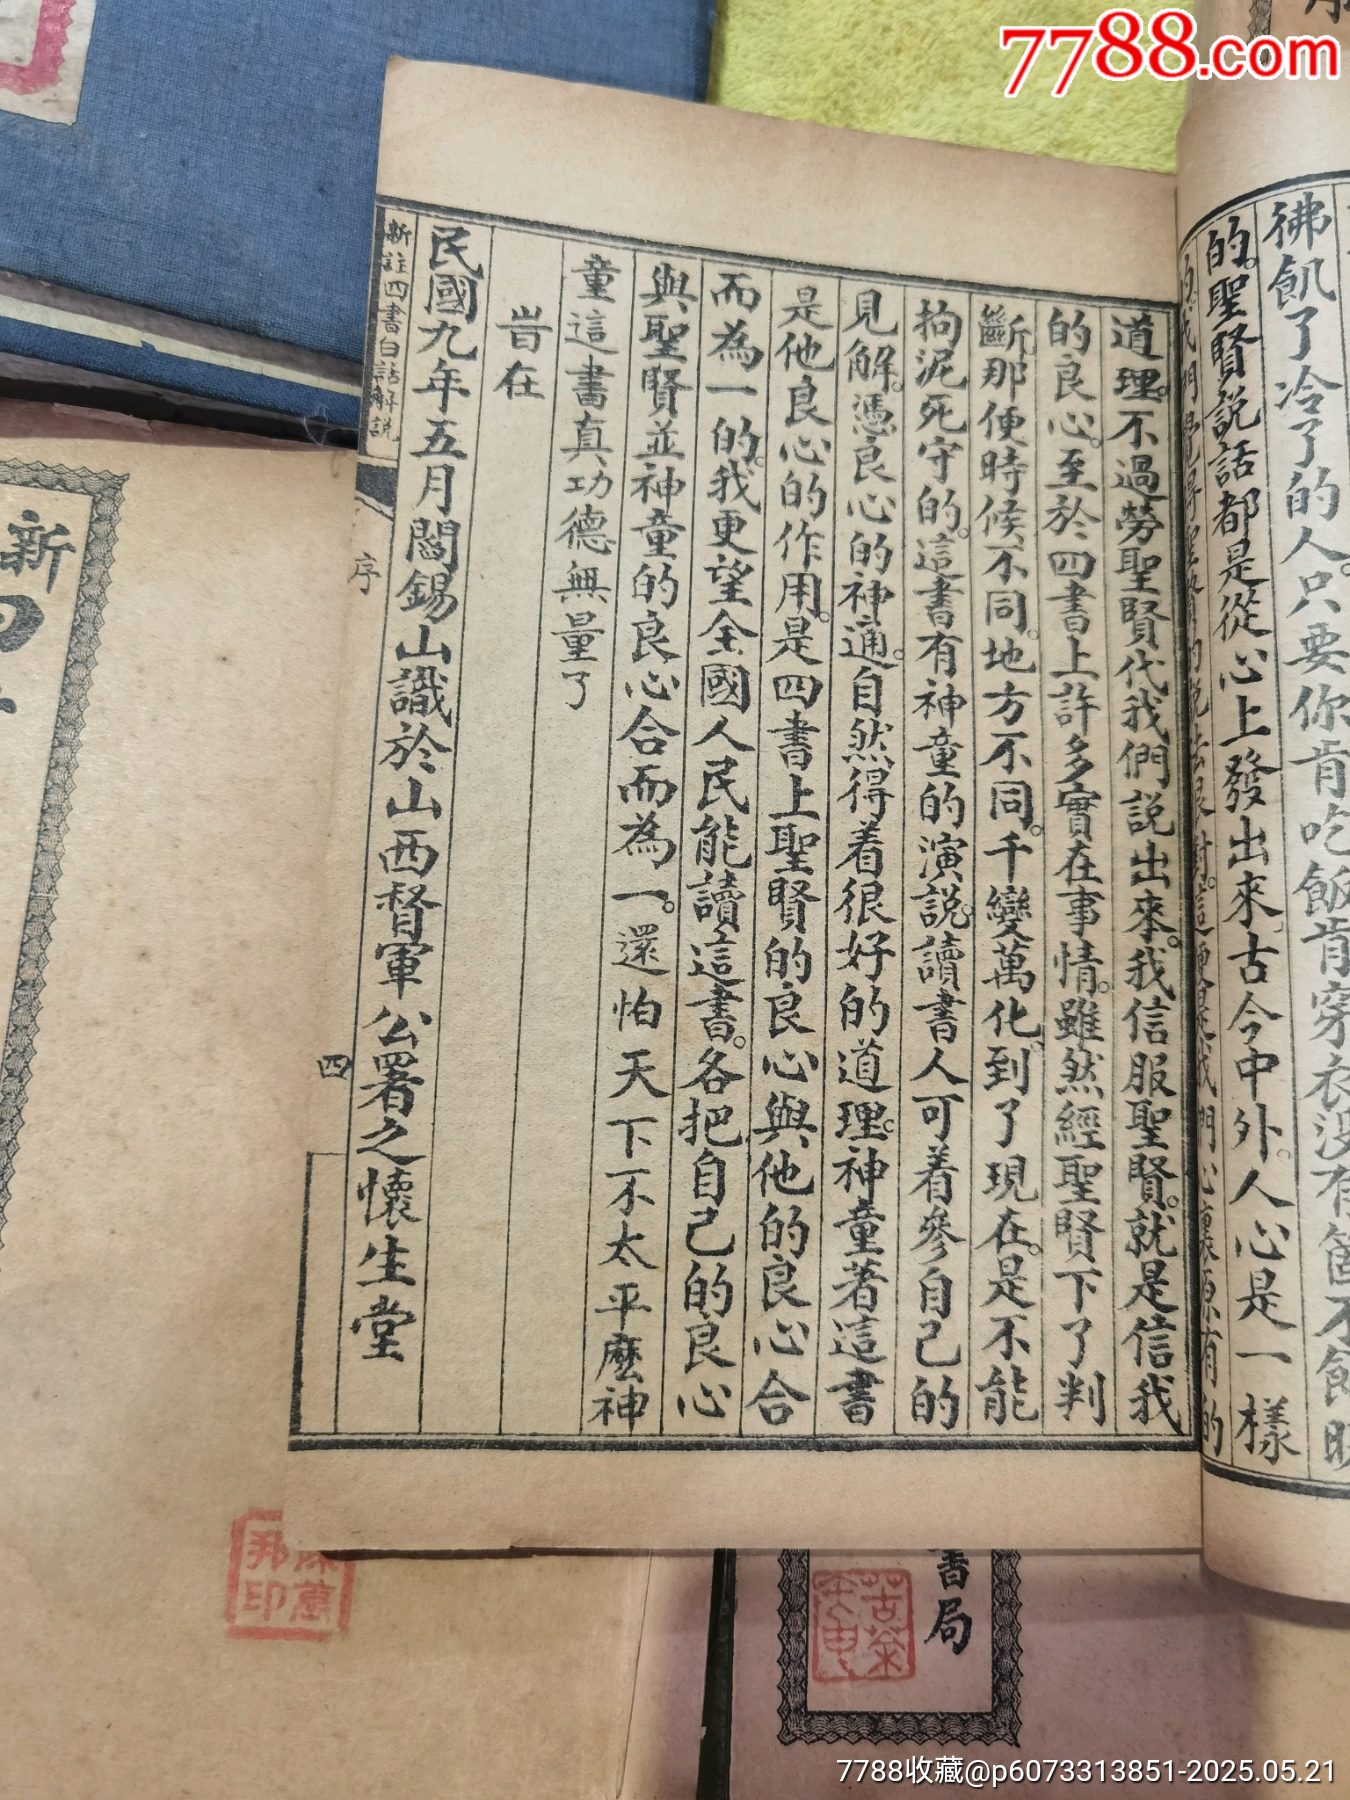 7788.com
彿飢了冷了的人。只要你肯吃飯肯穿衣没有箇不飽
的。聖賢説話都是從心上發出來。古今中外。人心是一樣
道理。不過勞聖賢代我們説出來。我信服聖賢。就是信我
的良心。至於四書上許多實在事情。雖然經聖賢下了判
斷那便時候不同。地方不同。千變萬化。到了現在。是不能
拘泥死守的。這書有神童的演説。讀書人可着參自己的
見解。憑良心的神通。自然得着很好的道理。神童著這書
是他良心的作用。是四書上聖賢的良心與他的良心合
而為一的。我更望全國人民能讀這書。各把自己的良心
與聖賢並神童的良心合而為一。還怕天下不太平麼神
童這書真功德無量了
旹在
民國九年五月閻錫山識於山西督軍公署之懷生堂
新註四書白話解説
序
四
新
書局
邦印
萬
7788收藏@p6073313851-2025.05.21